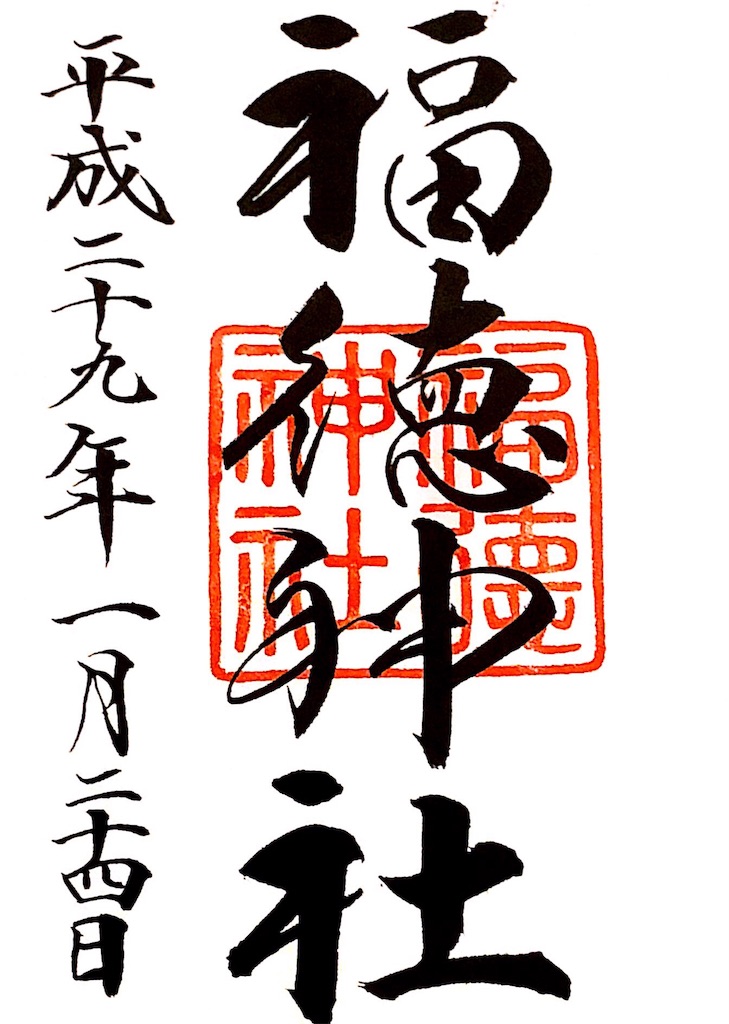 福徳神社
福徳
神社
平成二十九年一月二十四日